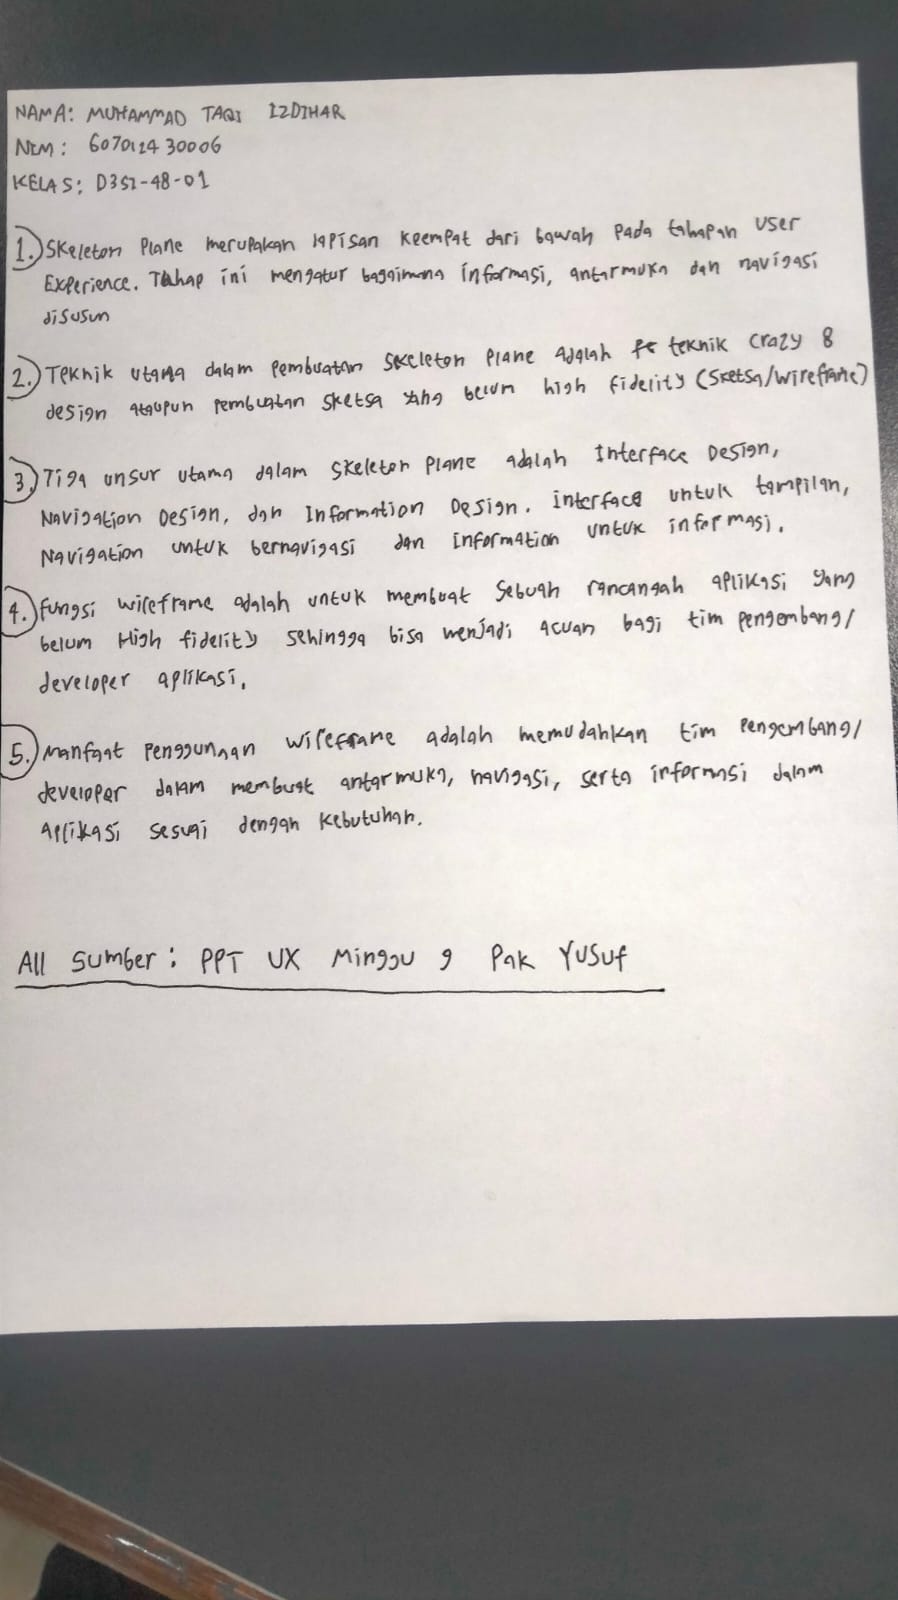 NAMA: MUHAMMAD TAQI IZDIHAR
NIM: 607012430006
KELAS: D3SI-48-01
1.) Skeleton Plane merupakan lapisan keempat dari bawah pada tahapan User
Experience. Tahap ini mengatur bagaimana informasi, antarmuka dan navigasi
disusun
2.) Teknik utama dalam pembuatan Skeleton Plane adalah teknik Crazy 8
design ataupun pembuatan sketsa yang belum high fidelity (Sketsa/wireframe)
3.) Tiga unsur utama dalam Skeleton Plane adalah Interface Design,
Navigation Design, dan Information Design. interface untuk tampilan,
Navigation untuk bernavigasi dan Information untuk informasi.
4.) fungsi wireframe adalah untuk membuat sebuah rancangan aplikasi yang
belum High fidelity sehingga bisa menjadi acuan bagi tim pengembang/
developer aplikasi.
5.) Manfaat penggunaan wireframe adalah memudahkan tim Pengembang/
developer dalam membuat antarmuka, navigasi, serta informasi dalam
Aplikasi sesuai dengan kebutuhan.
All Sumber: PPT UX Minggu 9 Pak Yusuf